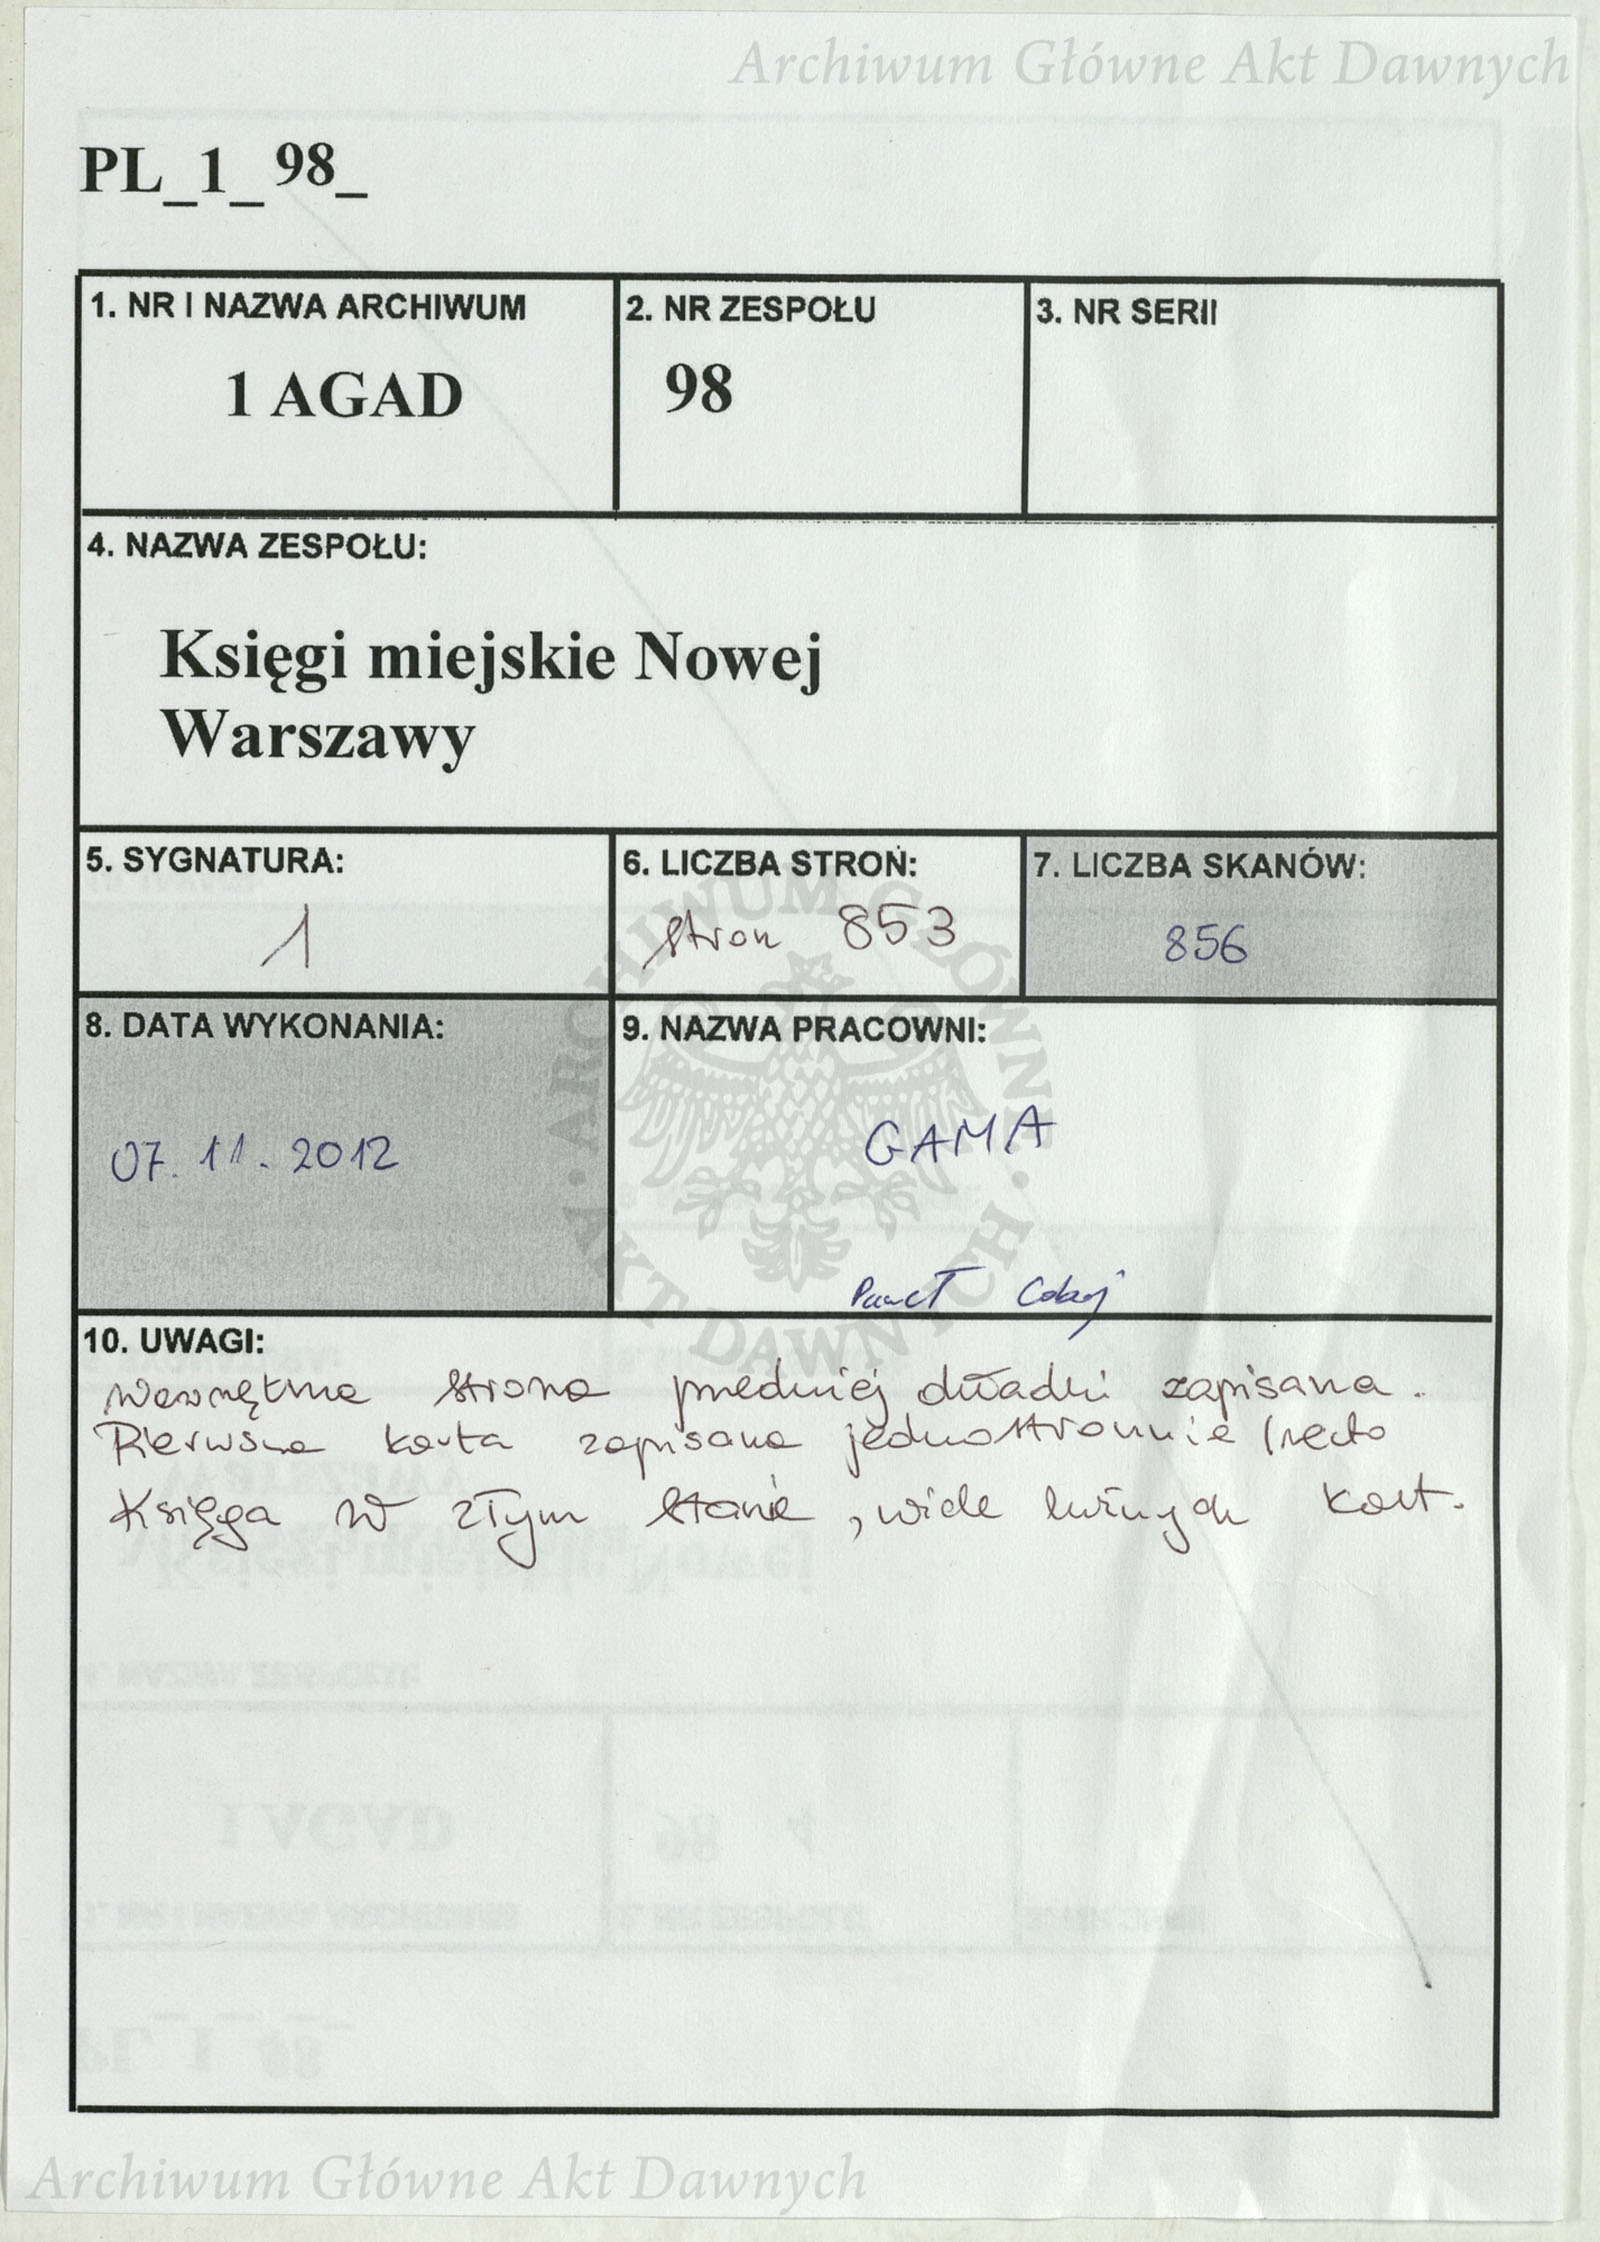 Archiwum Główne Akt Dawnych
PL_1_ 98_
1. NR I NAZWA ARCHIWUM
1 AGAD
2. NR ZESPOŁU
98
3. NR SERII
4. NAZWA ZESPOŁU:
Księgi miejskie Nowej
Warszawy
5. SYGNATURA:
1
6. LICZBA STRON:
stron 853
7. LICZBA SKANÓW:
856
8. DATA WYKONANIA:
07.11.2012
9. NAZWA PRACOWNI:
GAMA
Paweł
ARCHIWUM GŁÓWNE
AKT DAWNYCH
10. UWAGI:
Wewnętrzna strona przedniej okładki zapisana.
Pierwsza karta zapisana jednostronnie (recto
Księga w złym stanie, wiele luźnych kart.
Archiwum Główne Akt Dawnych